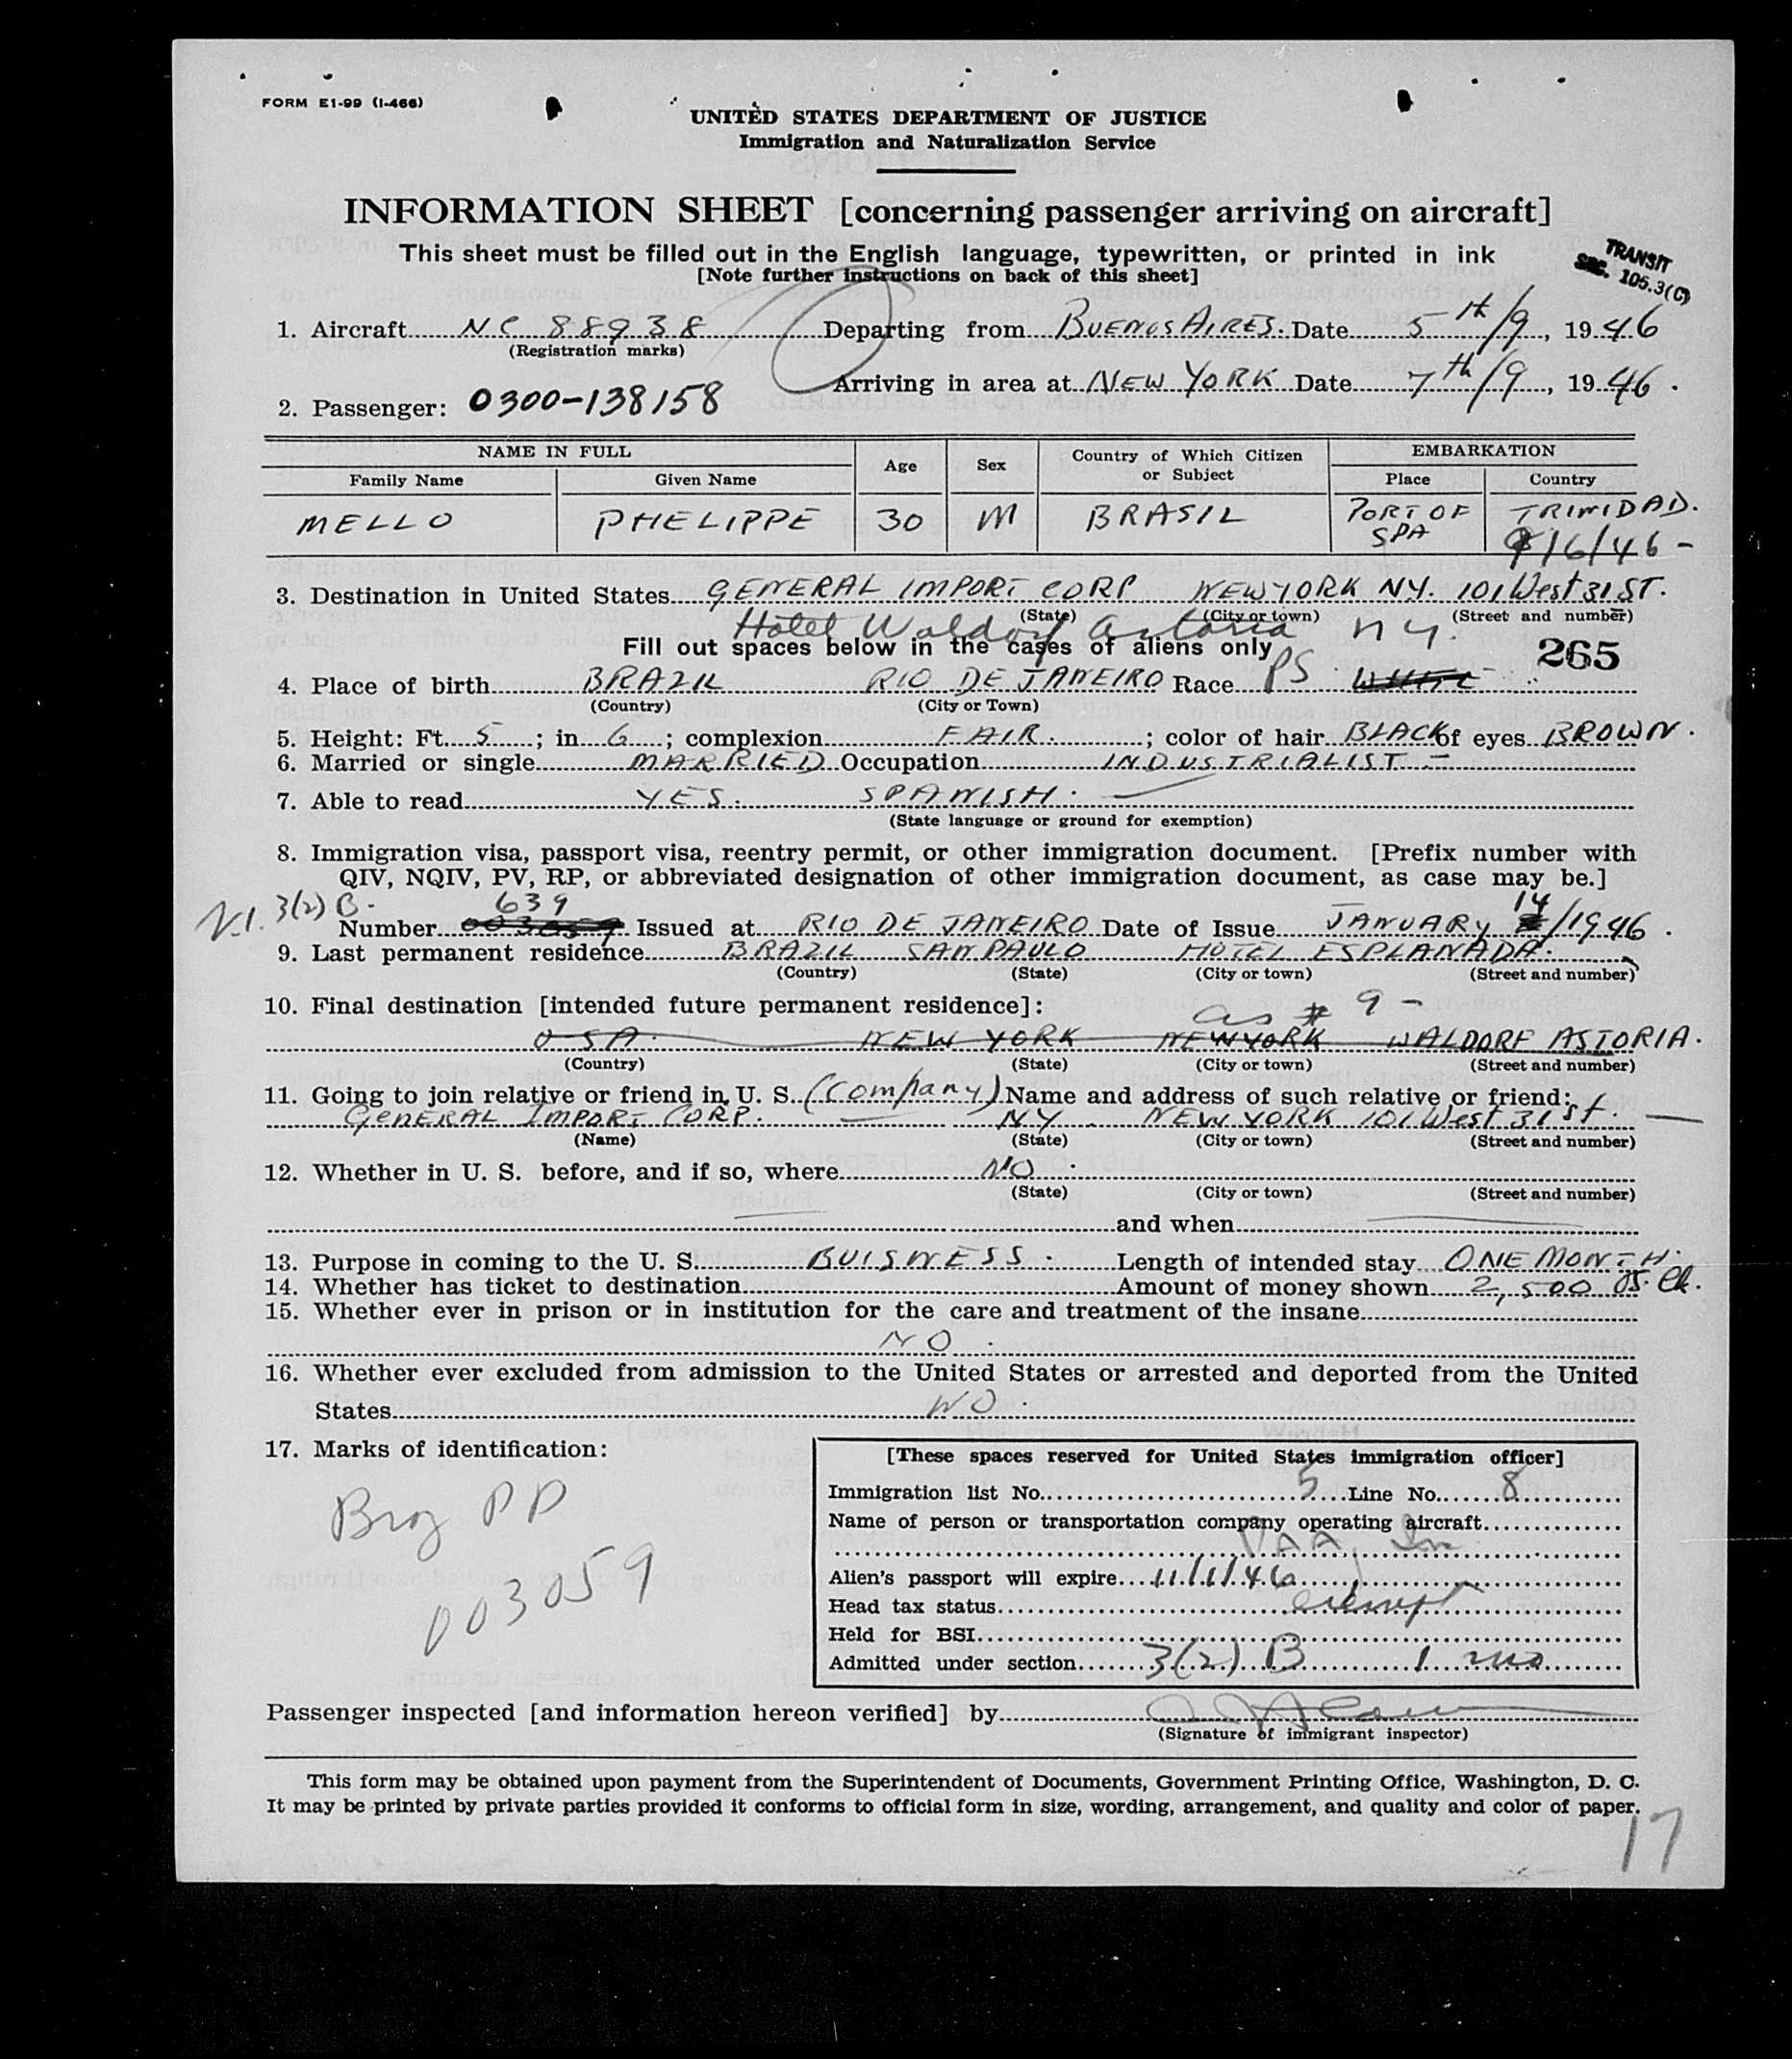 FORM E1-99 (I-466)
UNITED STATES DEPARTMENT OF JUSTICE
Immigration and Naturalization Service
INFORMATION SHEET [concerning passenger arriving on aircraft]
This sheet must be filled out in the English language, typewritten, or printed in ink
[Note further instructions on back of this sheet]
TRANSIT
SEC. 105.3(C)
1. Aircraft NC 88938 Departing from BUENOS AIRES. Date 5th/9, 1946
(Registration marks)
Arriving in area at NEW YORK Date 7th/9, 1946.
2. Passenger: 0300-138158
NAME IN FULL Age Sex Country of Which Citizen or Subject EMBARKATION
Family Name Given Name Place Country
MELLO PHELIPPE 30 M BRASIL PORT OF SPA TRINIDAD.
9/6/46 -
3. Destination in United States GENERAL IMPORT CORP NEW YORK NY. 101 West 31 ST.
(State) (City or town) (Street and number)
Hotel Waldorf Astoria NY.
Fill out spaces below in the cases of aliens only
265
4. Place of birth BRAZIL RIO DE JANEIRO Race PS WHITE
(Country) (City or Town)
5. Height: Ft. 5; in 6; complexion FAIR.; color of hair BLACK of eyes BROWN.
6. Married or single MARRIED Occupation INDUSTRIALIST -
7. Able to read YES. SPANISH.
(State language or ground for exemption)
8. Immigration visa, passport visa, reentry permit, or other immigration document. [Prefix number with
QIV, NQIV, PV, RP, or abbreviated designation of other immigration document, as case may be.]
V.I. 3(2) B. 639 14
Number 003059 Issued at RIO DE JANEIRO Date of Issue JANUARY /1946.
9. Last permanent residence BRAZIL SAN PAULO HOTEL ESPLANADA.
(Country) (State) (City or town) (Street and number)
10. Final destination [intended future permanent residence]: as # 9 -
USA. NEW YORK NEWYORK WALDORF ASTORIA.
(Country) (State) (City or town) (Street and number)
11. Going to join relative or friend in U. S. (Company) Name and address of such relative or friend:
GENERAL IMPORT CORP. NY NEW YORK 101 West 31 st.
(Name) (State) (City or town) (Street and number)
12. Whether in U. S. before, and if so, where NO.
(State) (City or town) (Street and number)
and when
13. Purpose in coming to the U. S. BUISNESS. Length of intended stay ONE MONTH.
14. Whether has ticket to destination Amount of money shown 2,500
15. Whether ever in prison or in institution for the care and treatment of the insane
NO.
16. Whether ever excluded from admission to the United States or arrested and deported from the United
States NO.
17. Marks of identification:
Braz PP
003059
[These spaces reserved for United States immigration officer]
Immigration list No. 5 Line No. 8
Name of person or transportation company operating aircraft
PAA, Inc
Alien's passport will expire 11/11/46
Head tax status exempt
Held for BSI
Admitted under section 3(2) B 1 mo
Passenger inspected [and information hereon verified] by
(Signature of immigrant inspector)
This form may be obtained upon payment from the Superintendent of Documents, Government Printing Office, Washington, D. C.
It may be printed by private parties provided it conforms to official form in size, wording, arrangement, and quality and color of paper.
17